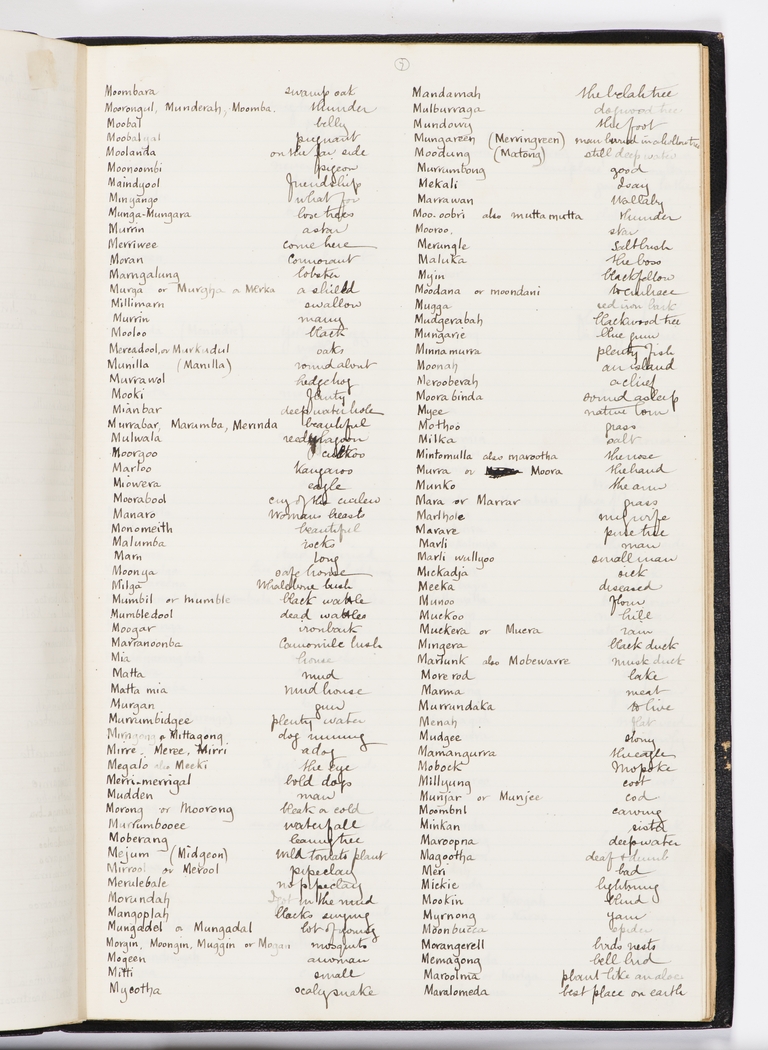 5
Moombara swamp oak
Moorongul, Munderah, Moomba. thunder
Moobal belly
Moobalyal pregnant
Moolanda on the far side
Moonoombi pigeon
Maindyool friendship
Minyango what for
Munga-Mungara lose trees
Murrin a star
Merriwee come here
Moran Cormorant
Marngalung lobster
Murga or Murgha or Merka a shield
Millimarn swallow
Murrin many
Mooloo black
Mereadool, or Murkudul oaks
Munilla (Manilla) round about
Murrawol hedgehog
Mooki flinty
Mianbar deep water hole
Murrabar, Marumba, Merinda beautiful
Mulwala reedy lagoon
Moorgoo cuckoo
Marloo Kangaroo
Miowera eagle
Moorabool cry of the curlew
Manaro Womans breasts
Monomeith beautiful
Malumba rocks
Marn long
Moonya safe house
Milga Whalebone bush
Mumbil or mumble black wattle
Mumbledool dead wattles
Moogar ironbark
Marranoonba Camomile bush
Mia house
Matta mud
Matta mia mud house
Murgan gun
Murrumbidgee plenty water
or Mittagong dog running
Mirre, Meree, Mirri a dog
Megalo also Meeki the eye
Merri-merrigal bold dogs
Mudden man
Morong or Moorong bleak or cold
Murrumbooee waterfall
Moberang leaning tree
Mejum (Midgeon) Wild tomato plant
Mirrool or Merool pipeclay
Merulebale no pipeclay
Morundah in the mud
Mangoplah blacks singing
Mungadel or Mungadal lot of young
Morgin, Moongin, Muggin or Mogan mosquito
Mogeen a woman
Mitti small
Mycotha scaly snake
Mandamah the belah tree
Mulburraga dogwood tree
Mundowy the foot
Mungareen (Merringreen) man buried in a hollow tree
Moodung (Matong) still deep water
Murrumbong good
Mekali I say
Marrawan Wallaby
Moo-oobri also mutta mutta thunder
Mooroo. star
Merungle Saltbush
Maluka the boss
Myin blackfellow
Moodana or moondani
Mugga red iron bark
Mudgerabah blackwood tree
Mungarie blue gum
Minnamurra plenty fish
Moonah an island
Merooberah a cliff
Moora binda sound asleep
Myee native born
Mothoo grass
Milka salt
Mintomulla also marootha the nose
Murra or Moora the hand
Munko the arm
Mara or Marrar grass
Marlhole my wife
Marare pine tree
Marli man
Marli wullyoo small man
Mickadja sick
Meeka diseased
Munoo flour
Muckoo hill
Muckera or Mucra rain
Mingera black duck
Marlunk also Mobewarre musk duck
More rod lake
Marma meat
Murrundaka to live
Menah flat
Mudgee stony
Mamangurra the eagle
Mobock Mopoke
Millyung coot
Munjar or Munjee cod
Moombnl carving
Minkan sister
Maroopna deep water
Magootha deaf & dumb
Meri bad
Mickie lightning
Mookin blind
Myrnong yam
Moonbucca spider
Morangerell birds nests
Memagong bell bird
Maroolma plant like an aloe
Maralomeda best place on earth